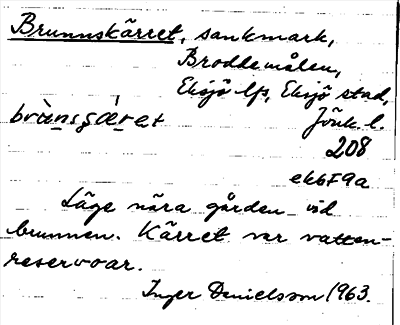 Brunnskärret, sankmark,
Broddemålen,
Eksjö lfs, Eksjö stad,
brùnsçæ̀ret Jönk. l.
208
ek6F9a
Läge nära gården vid
brunnen. Kärret var vatten-
reservoar.
Inger Danielsson 1963.